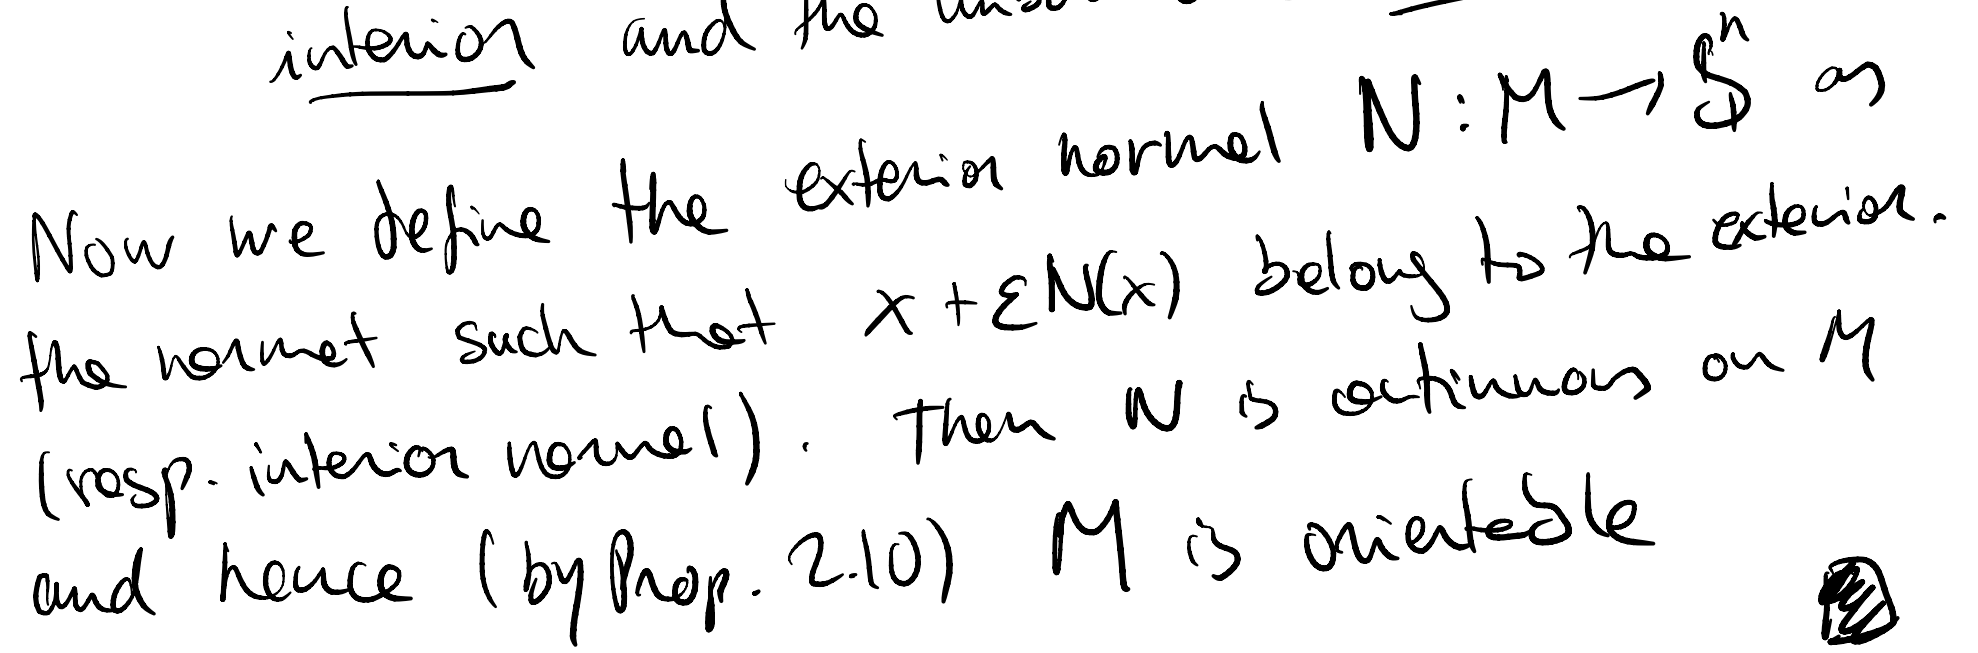 interior and the
Now we define the exterior normal N : M → Sⁿ as
the normal such that x + εN(x) belong to the exterior.
(resp. interior normal). Then N is continuous on M
and hence (by Prop. 2.10) M is orientable